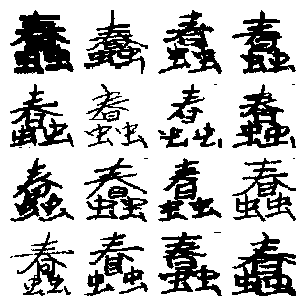 蠢蠢蠢蠢
蠢蠢蠢蠢
蠢蠢蠢蠢
蠢蠢蠢蠢